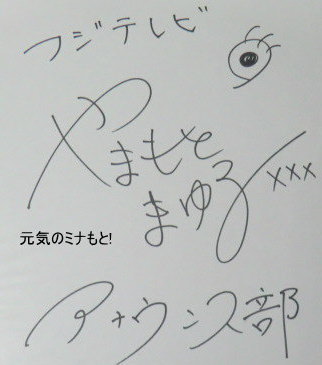 フジテレビ
やまもと
まゆ子
xxx
元気のミナもと!
アナウンス部